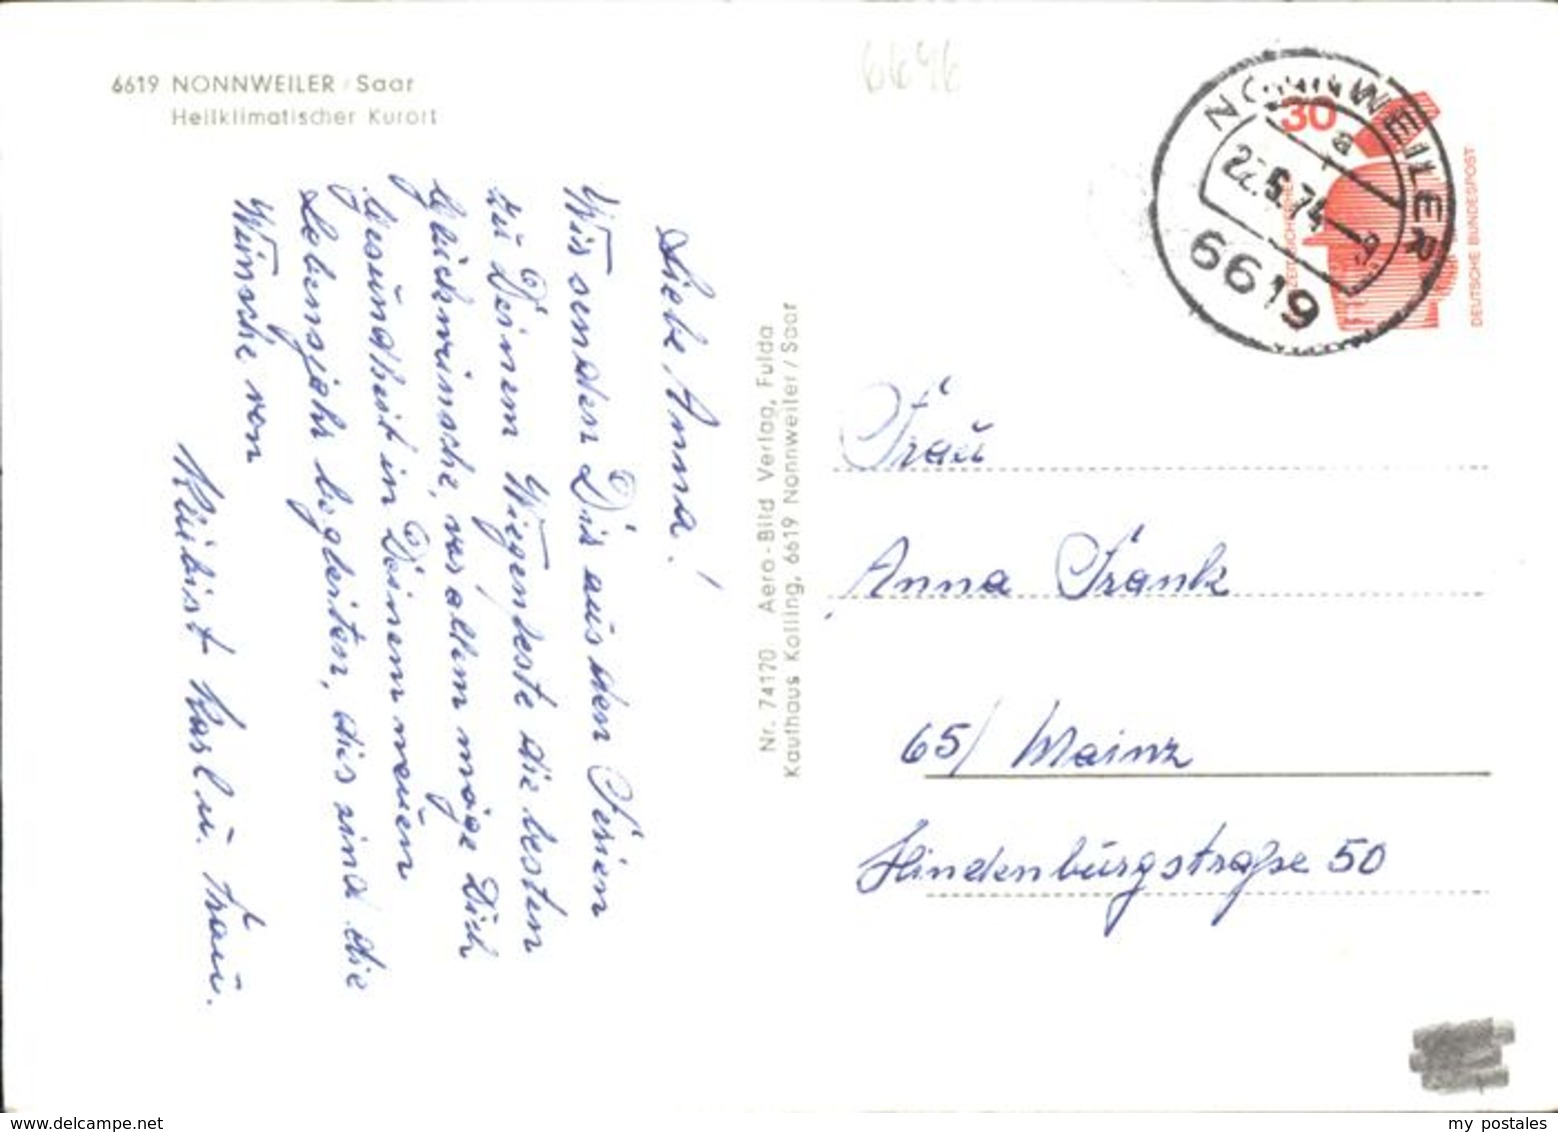 6619 NONNWEILER / Saar
Heilklimatischer Kurort
Liebe Anna!
Wir senden Dir aus den Ferien
zu Deinem Wiegenfeste die besten
Glückwünsche, vor allem möge Dich
Gesundheit in Deinem neuen
Lebensjahr begleiten, dies sind die
Wünsche von
Karl u. Frau.
Nr. 74170 Aero-Bild Verlag, Fulda
Kaufhaus Kolling, 6619 Nonnweiler / Saar
30
DEUTSCHE BUNDESPOST
NONNWEILER
a
22.5.74
6619
Frau
Anna Frank
65/ Mainz
Hindenburgstraße 50
my_postales